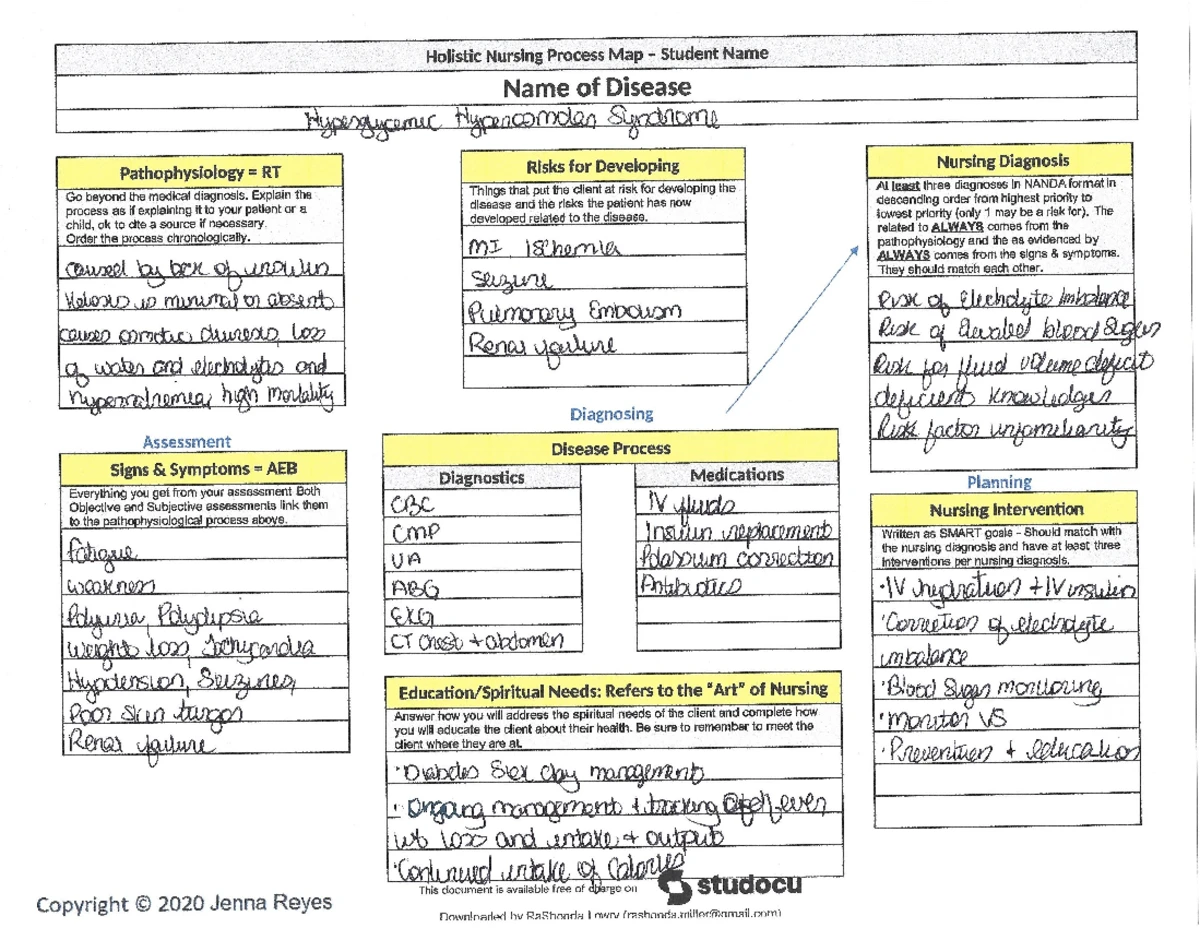 Holistic Nursing Process Map – Student Name
Name of Disease
Hyperglycemic Hyperosmolar Syndrome
Pathophysiology = RT
Go beyond the medical diagnosis. Explain the
process as if explaining it to your patient or a
child, ok to cite a source if necessary.
Order the process chronologically.
caused by lack of insulin
Ketosis is minimal or absent
causes osmotic diuresis, loss
of water and electrolytes and
hypernatremia, high mortality
Assessment
Signs & Symptoms = AEB
Everything you get from your assessment Both
Objective and Subjective assessments link them
to the pathophysiological process above.
fatigue
weakness
Polyuria, Polydipsia
Weight loss, Tachycardia
Hypotension, Seizures,
Poor Skin turgor
Renal failure
Risks for Developing
Things that put the client at risk for developing the
disease and the risks the patient has now
developed related to the disease.
MI Ischemia
Seizure
Pulmonary Embolism
Renal failure
Diagnosing
Disease Process
Diagnostics
CBC
CMP
UA
ABG
EKG
CT chest + abdomen
Medications
IV fluids
Insulin replacement
Potassium correction
Antibiotics
Education/Spiritual Needs: Refers to the "Art" of Nursing
Answer how you will address the spiritual needs of the client and complete how
you will educate the client about their health. Be sure to remember to meet the
client where they are at.
· Diabetes Sick day management
· Ongoing management + tracking of fever
wt loss and intake + output
· Continued intake of Calories
Nursing Diagnosis
At least three diagnoses in NANDA format in
descending order from highest priority to
lowest priority (only 1 may be a risk for). The
related to ALWAYS comes from the
pathophysiology and the as evidenced by
ALWAYS comes from the signs & symptoms.
They should match each other.
Risk of Electrolyte Imbalance
Risk of Elevated blood Sugar
Risk for fluid volume deficit
deficient knowledge
Risk factor unfamiliarity
Planning
Nursing Intervention
Written as SMART goals – Should match with
the nursing diagnosis and have at least three
interventions per nursing diagnosis.
· IV hydration + IV insulin
· Correction of electrolyte
imbalance
· Blood Sugar monitoring
· monitor VS
· Prevention + education
Copyright © 2020 Jenna Reyes
This document is available free of charge on
studocu
Downloaded by RaShonda Lowry (rashonda.miller@gmail.com)